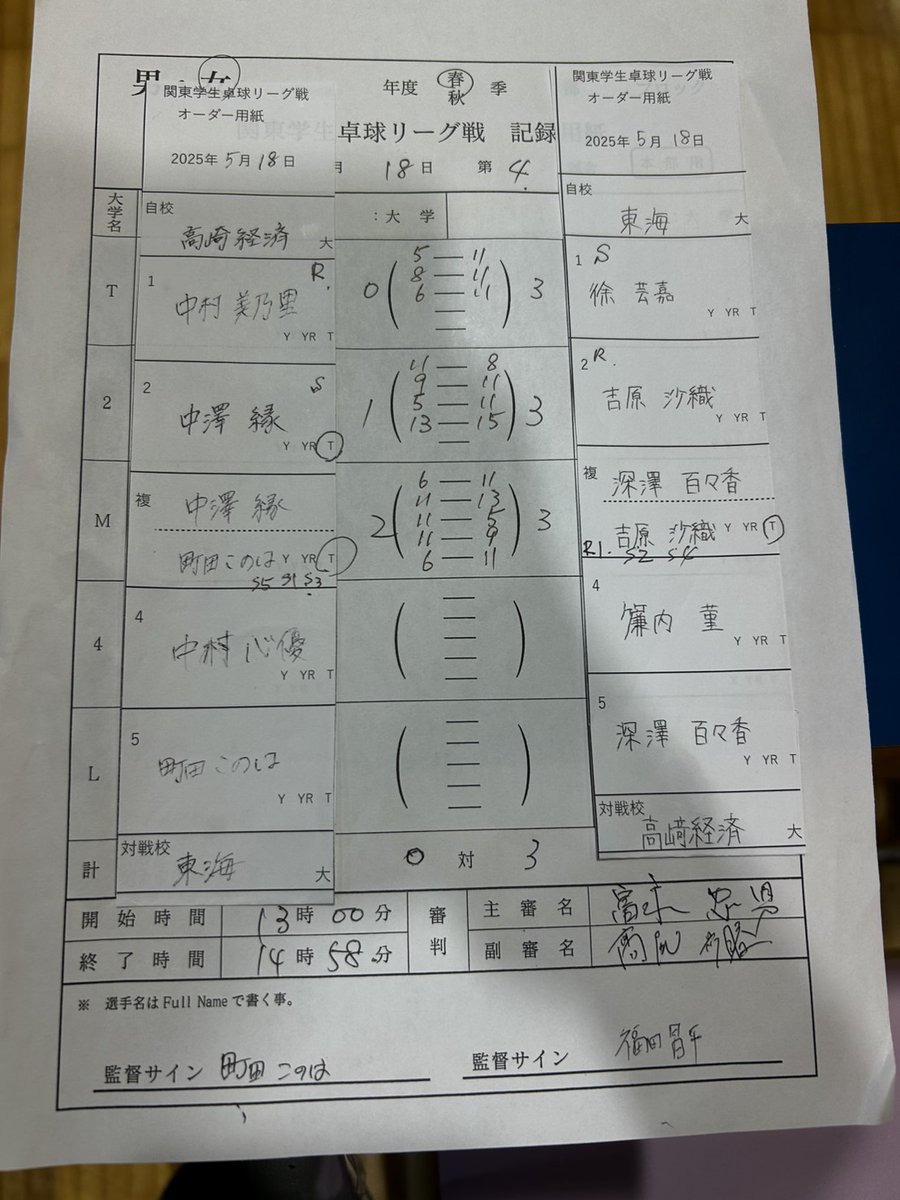 男・女
年度 春 季
秋
関東学生卓球リーグ戦
オーダー用紙
2025年 5月 18日
卓球リーグ戦 記録
月 18日 第 4
関東学生卓球リーグ戦
オーダー用紙
2025年 5月 18日
大学名
自校
高崎経済 大
：大 学
自校
東海 大
T
1 R.
中村 美乃里
Y YR T
0 3
5 — 11
8 — 11
6 — 11
1 S
徐 芸嘉
Y YR T
2
2 S
中澤 縁
Y YR T
1 3
11 — 8
9 — 11
5 — 11
13 — 15
2 R.
吉原 沙織
Y YR T
M
複
中澤 縁
町田 このは Y YR T
S5 S1 S3
2 3
6 — 11
11 — 13
11 — 5
11 — 9
6 — 11
複
深澤 百々香
吉原 沙織 Y YR T
R1. S2 S4
4
4
中村 心優
Y YR T
4
簾内 菫
Y YR T
L
5
町田 このは
Y YR T
5
深澤 百々香
Y YR T
計
対戦校
東海 大
0 対 3
対戦校
高崎経済 大
開始時間 13時 00分
終了時間 14時 58分
審判
主審名
副審名
※ 選手名は Full Name で書く事。
監督サイン 町田 このは
監督サイン 福田